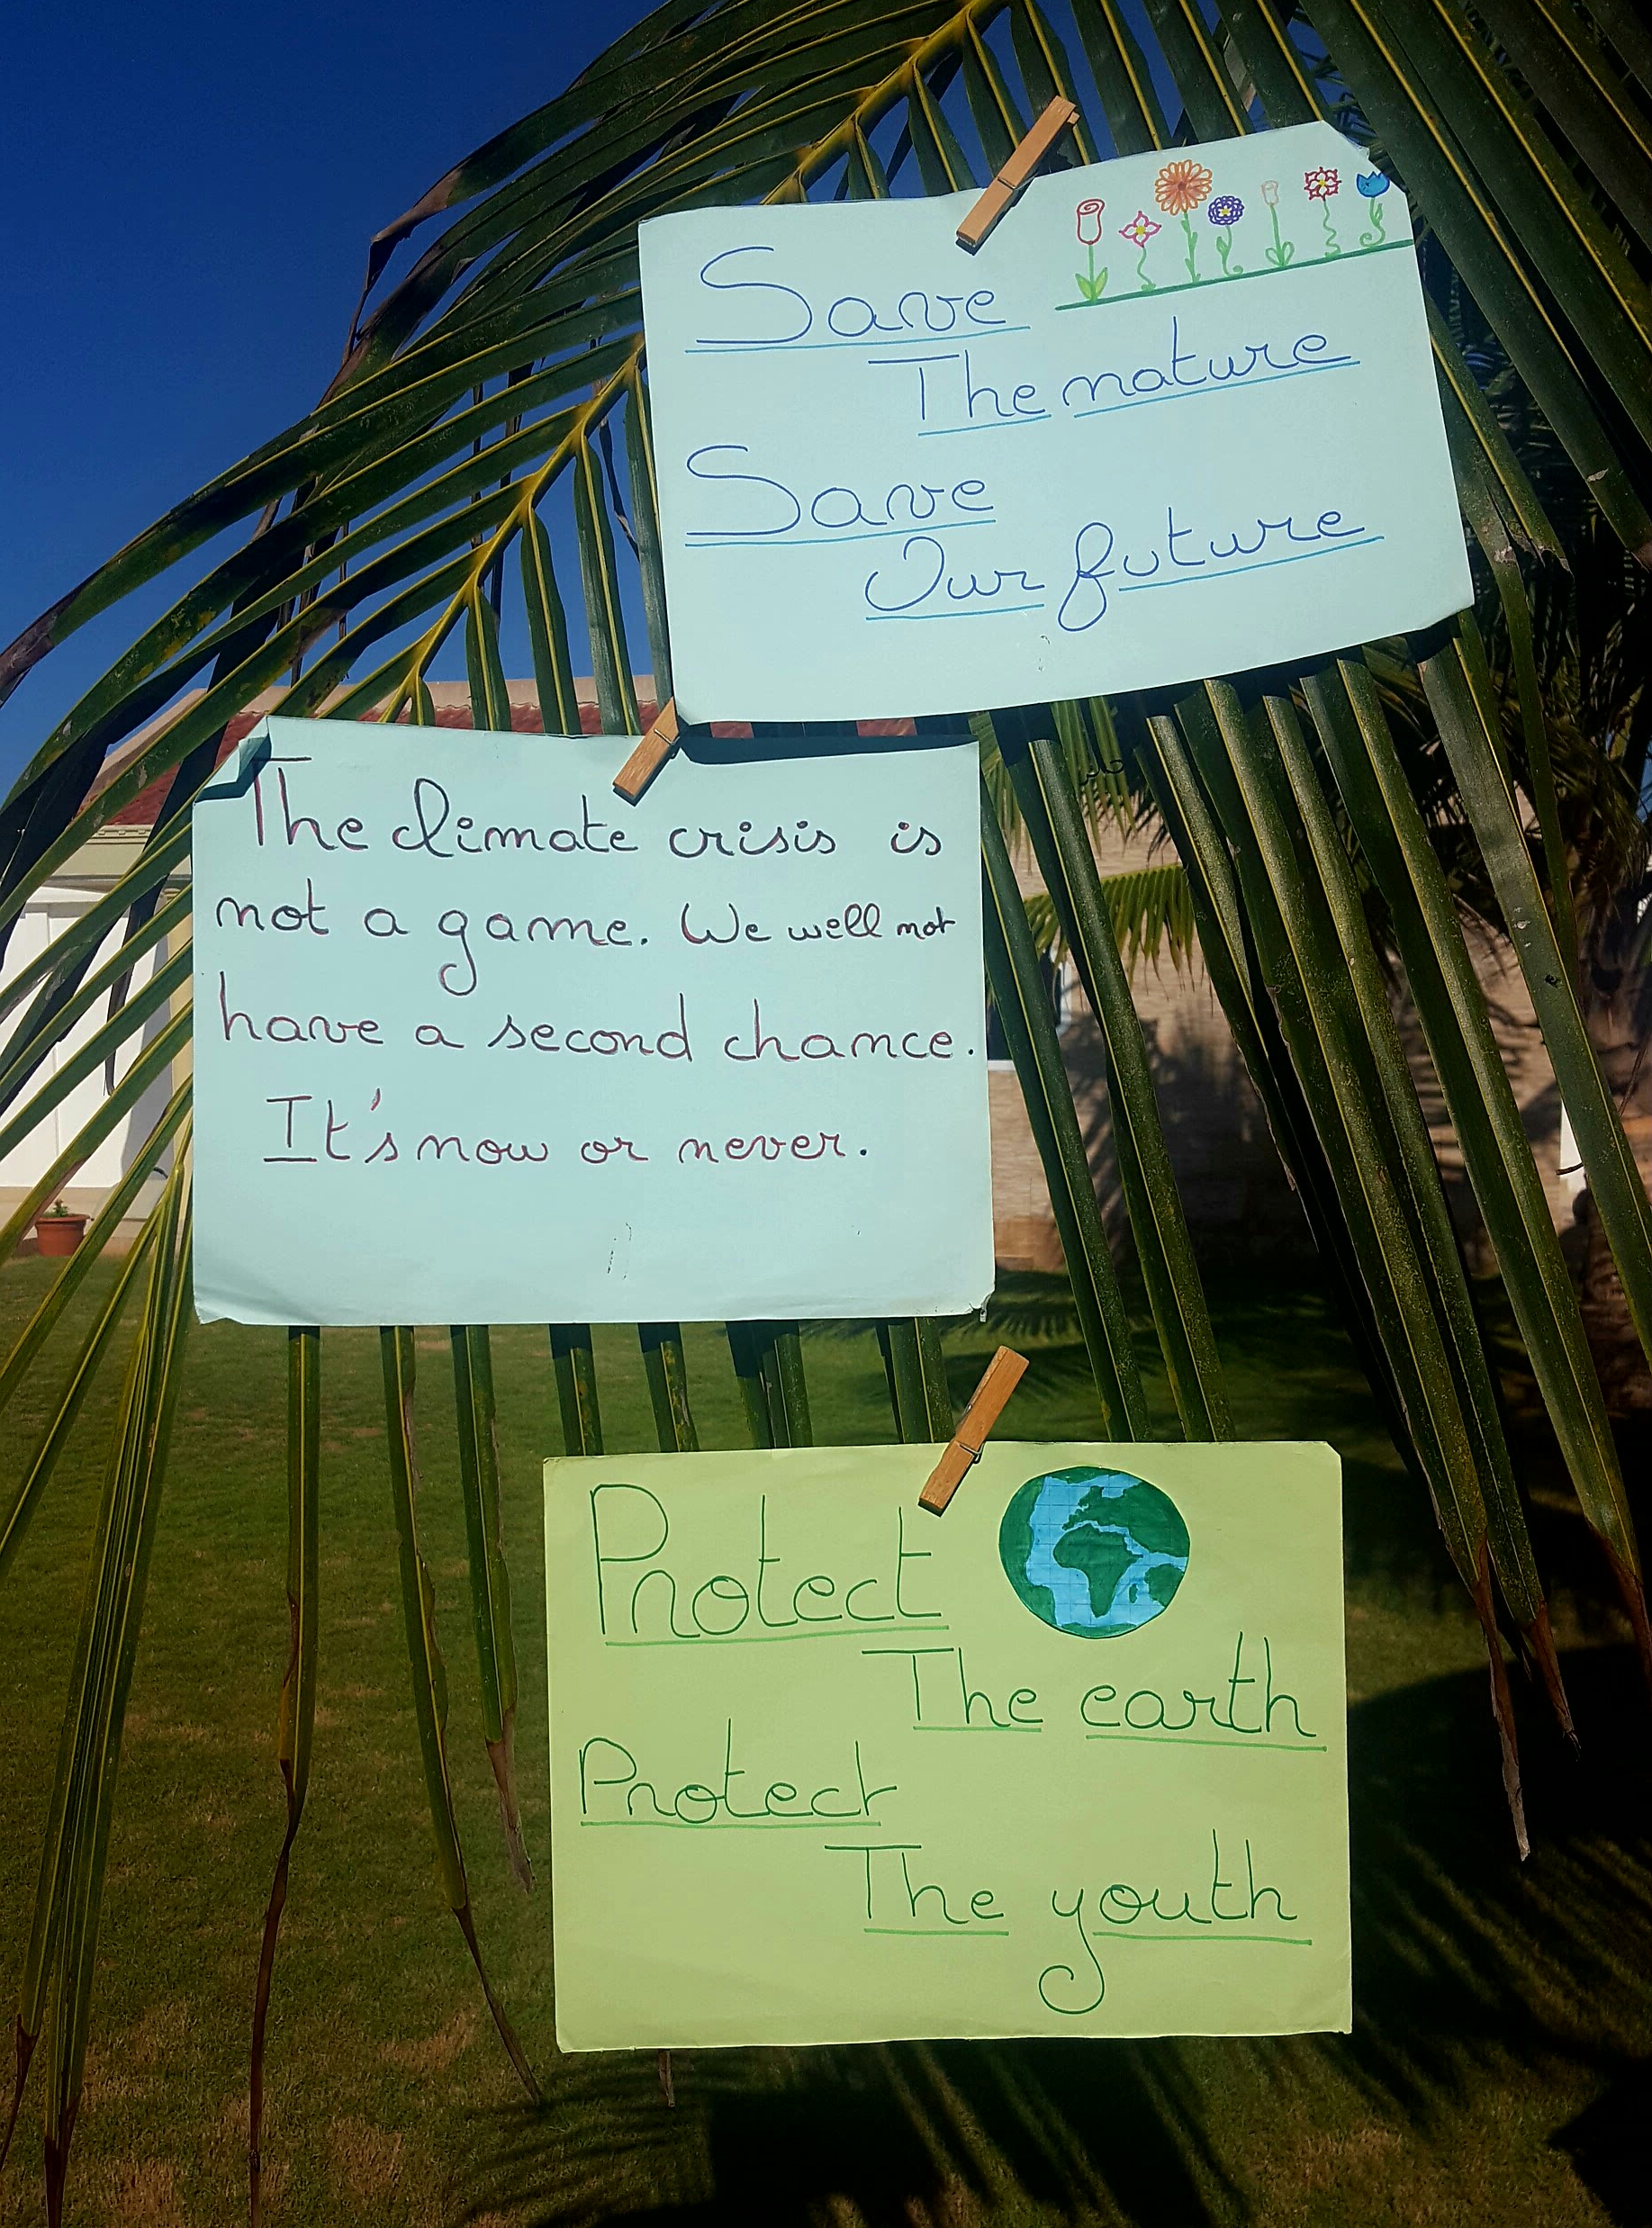 Save
The nature
Save
Our future
The climate crisis is
not a game. We well not
have a second chance.
It's now or never.
Protect
The earth
Protect
The youth